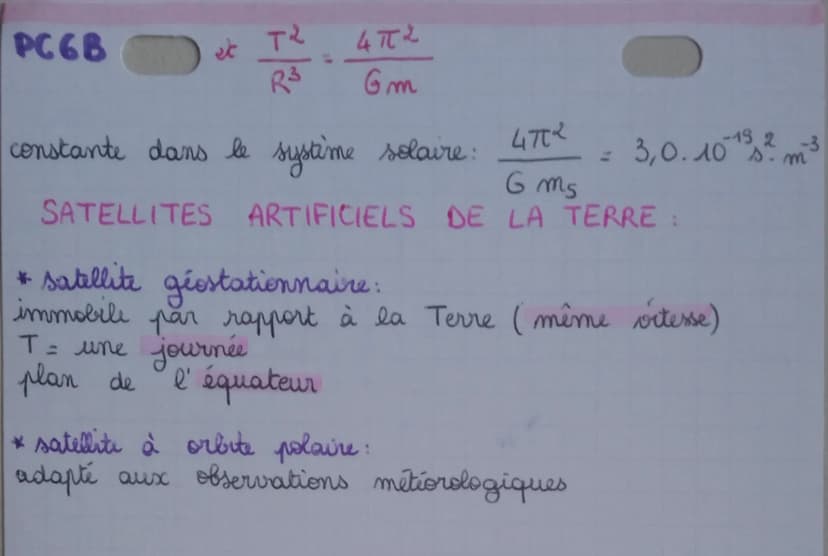 PC6B et T²/R³ = 4π²/Gm
constante dans le système solaire : 4π²/G mS = 3,0.10⁻¹⁹ s².m⁻³
SATELLITES ARTIFICIELS DE LA TERRE :
* satellite géostationnaire :
immobile par rapport à la Terre (même vitesse)
T = une journée
plan de l'équateur
* satellite à orbite polaire :
adapté aux observations météorologiques